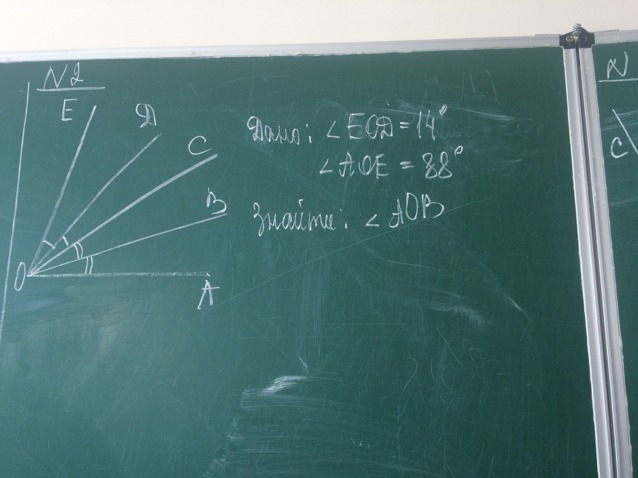 N2
E
D
C
B
O
A
Дано: ∠EOD = 14°
∠AOE = 88°
Знайти: ∠AOB
N
C